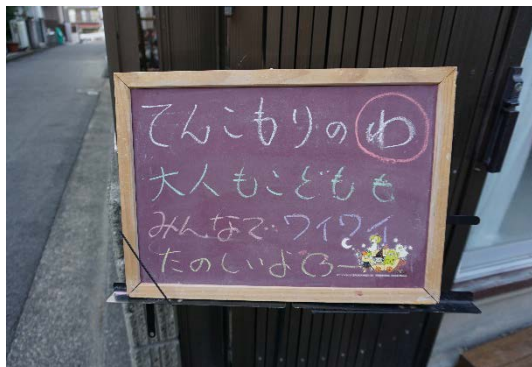 てんこもりの わ
大人もこどもも
みんなで‥ワイワイ
たのしいよ〜